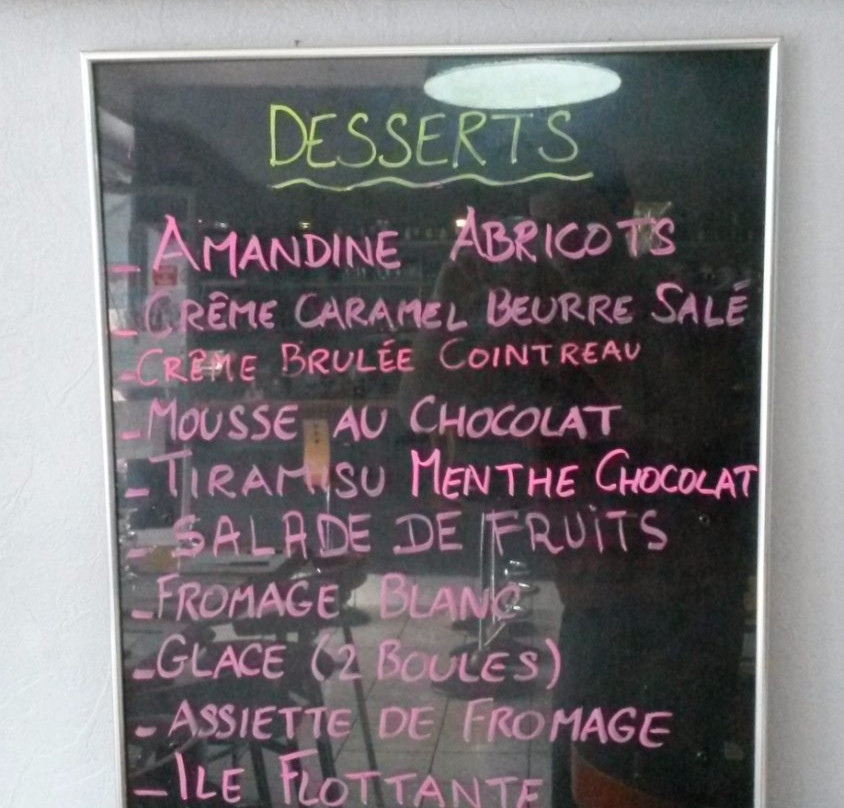 DESSERTS
- AMANDINE ABRICOTS
- CRÊME CARAMEL BEURRE SALÉ
- CRÊME BRULÉE COINTREAU
- MOUSSE AU CHOCOLAT
- TIRAMISU MENTHE CHOCOLAT
- SALADE DE FRUITS
- FROMAGE BLANC
- GLACE (2 BOULES)
- ASSIETTE DE FROMAGE
- ILE FLOTTANTE